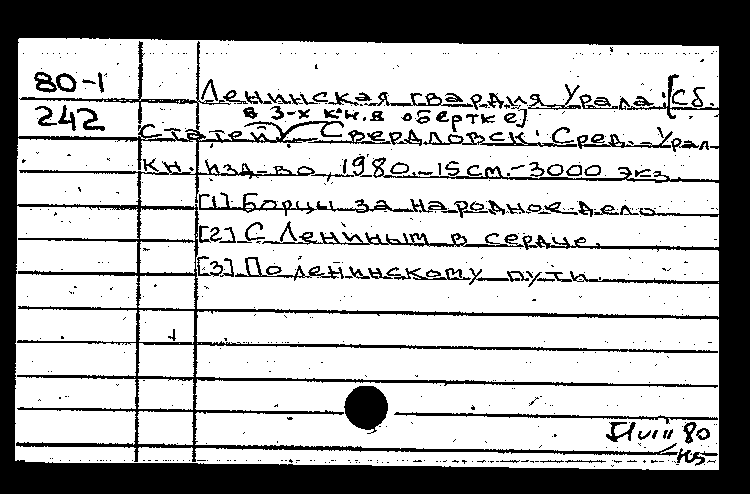 80-1
242
Ленинская гвардия Урала: [Сб.
в 3-х кн. в обертке]
статей) Свердловск: Сред.-Урал.
кн. изд-во, 1980.-15см.-3000 экз.
[1] Борцы за народное дело
[2] С Лениным в сердце.
[3] По ленинскому пути.
VIII 80